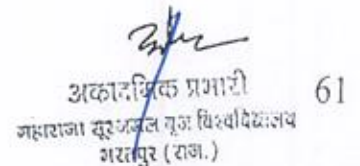 अकादमिक प्रभारी 61
महाराजा सूरजमल बृज विश्वविद्यालय
भरतपुर (राज.)